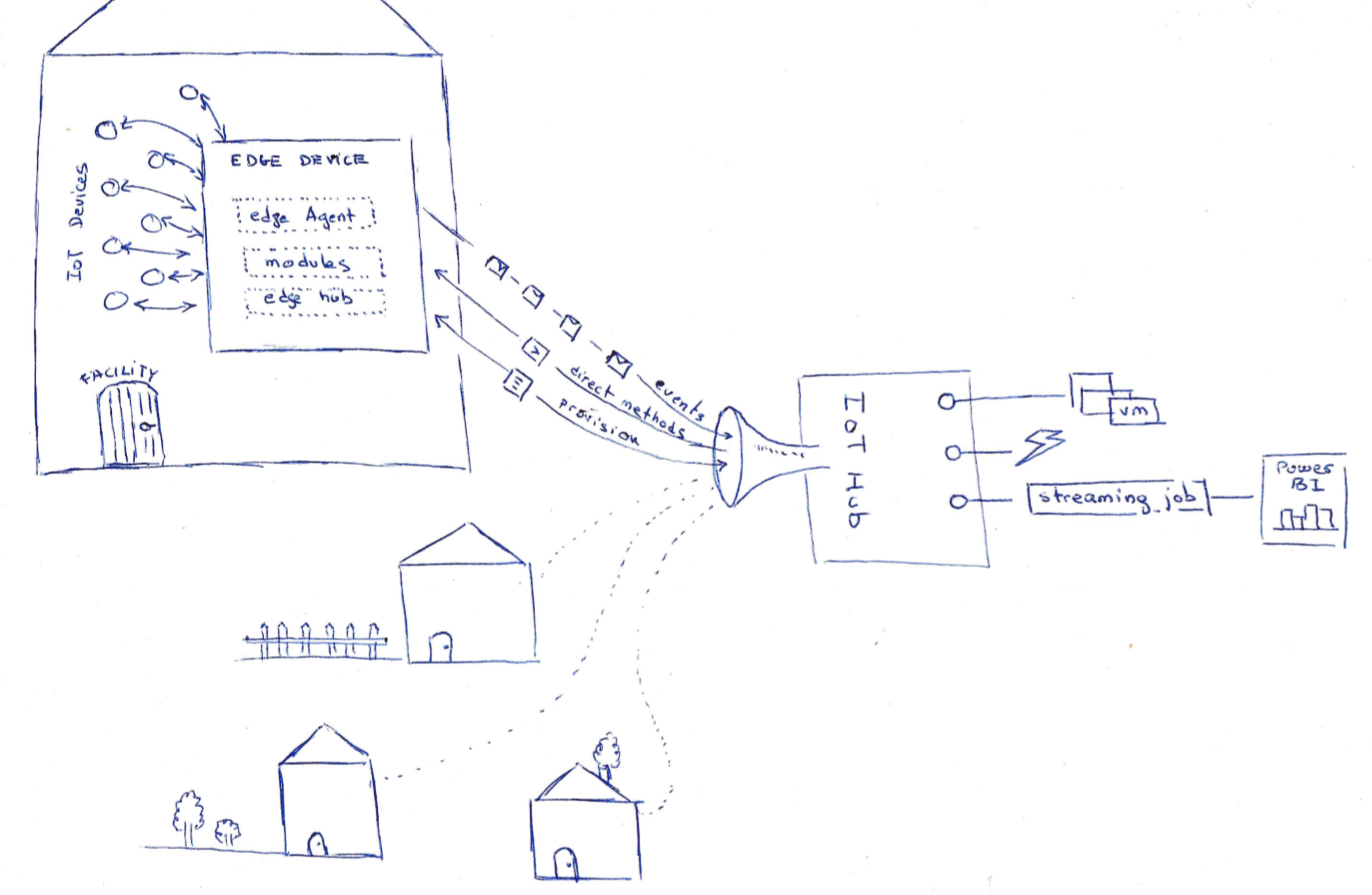 IoT Devices
EDGE DEVICE
edge Agent
modules
edge hub
FACILITY
events
direct methods
provision
IoT Hub
vm
streaming job
Power
BI